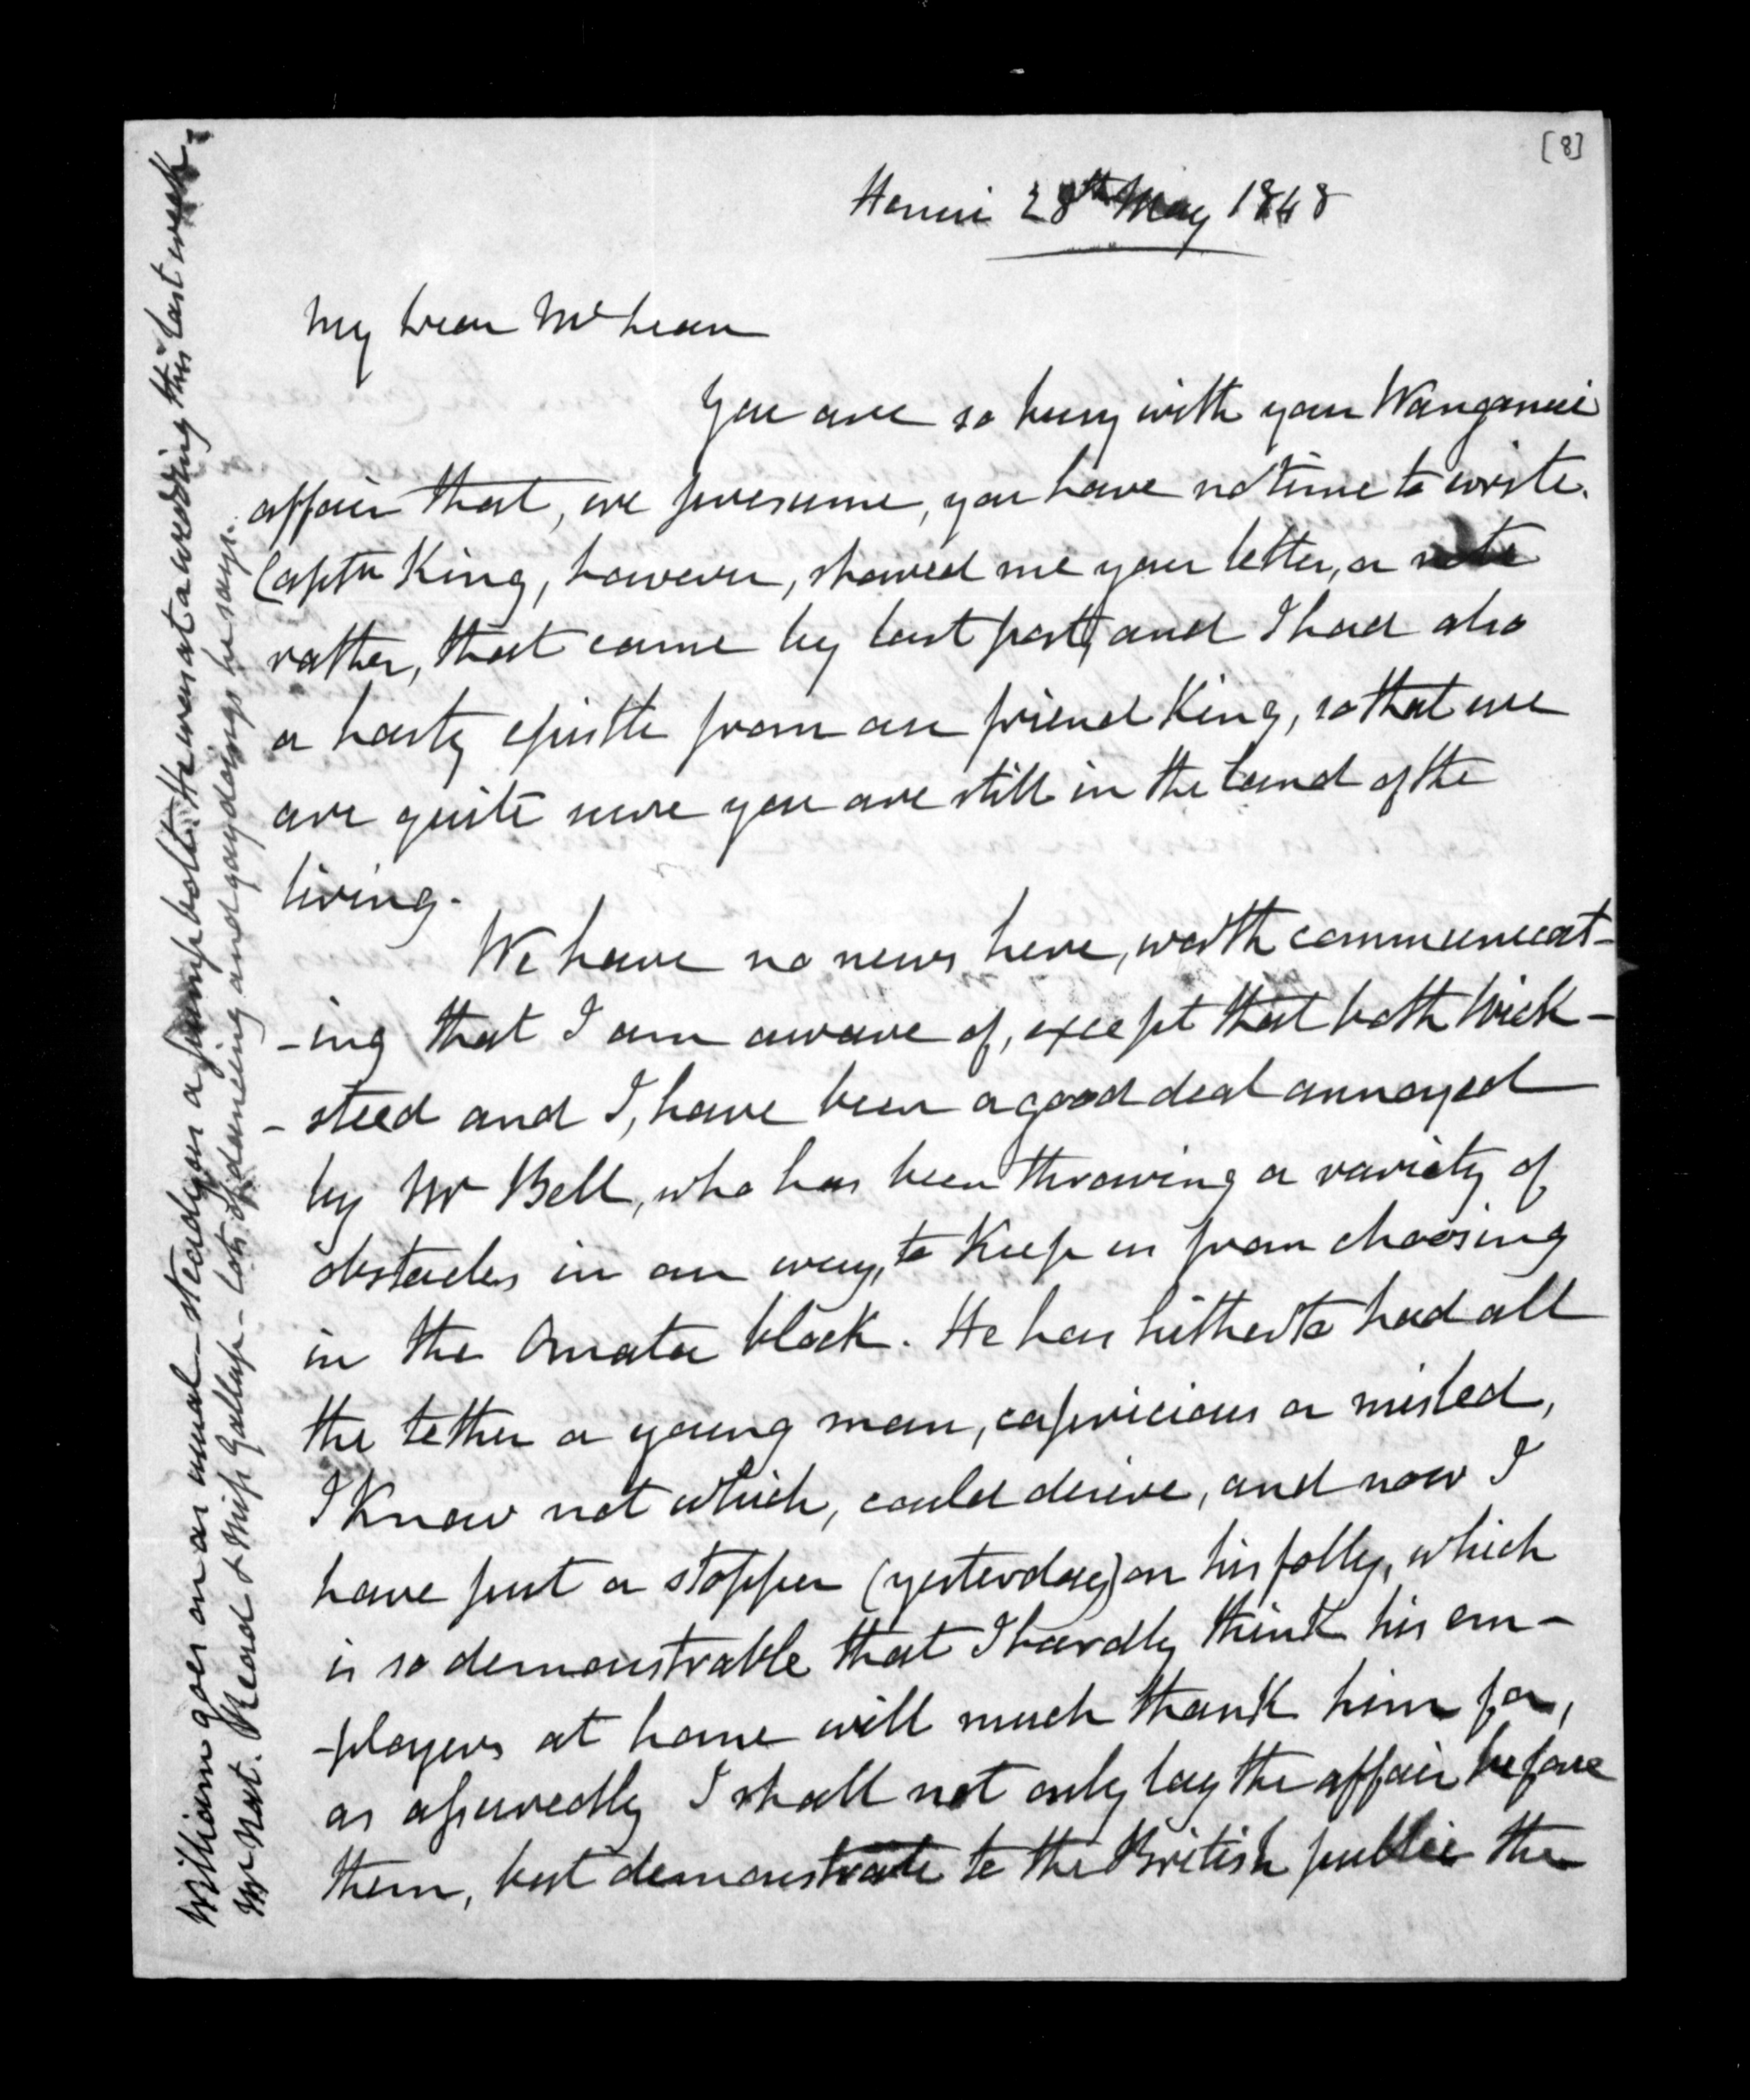 [8]
Henui 28th May 1848
My Dear McLean
You are so busy with your Wanganui
affair that, we presume, you have no time to write.
Captn King, however, showed me your letter, or note
rather, that came by last post, and I had also
a hasty epistle from our friend King, so that we
are quite sure you are still in the land of the
living.
We have no news here, worth communicat-
-ing that I am aware of, except that both Wick-
-steed and I, have been a good deal annoyed
by Mr Bell, who has been throwing a variety of
obstacles in our way, to keep us from choosing
in the Omata block. He has hitherto had all
the tether a young man, capricious or misled,
I know not which, could desire, and now I
have put a stopper (yesterday) on his folly, which
is so demonstrable that I hardly think his em-
-ployers at home will much thank him for,
as assuredly I shall not only lay the affair before
them, but demonstrate to the British public the
William goes on as usual - steady as a pump bolt. He was at a wedding this last week -
Mr Nat. Read & Miss Gallap - lots of dancing and gay doings he says.